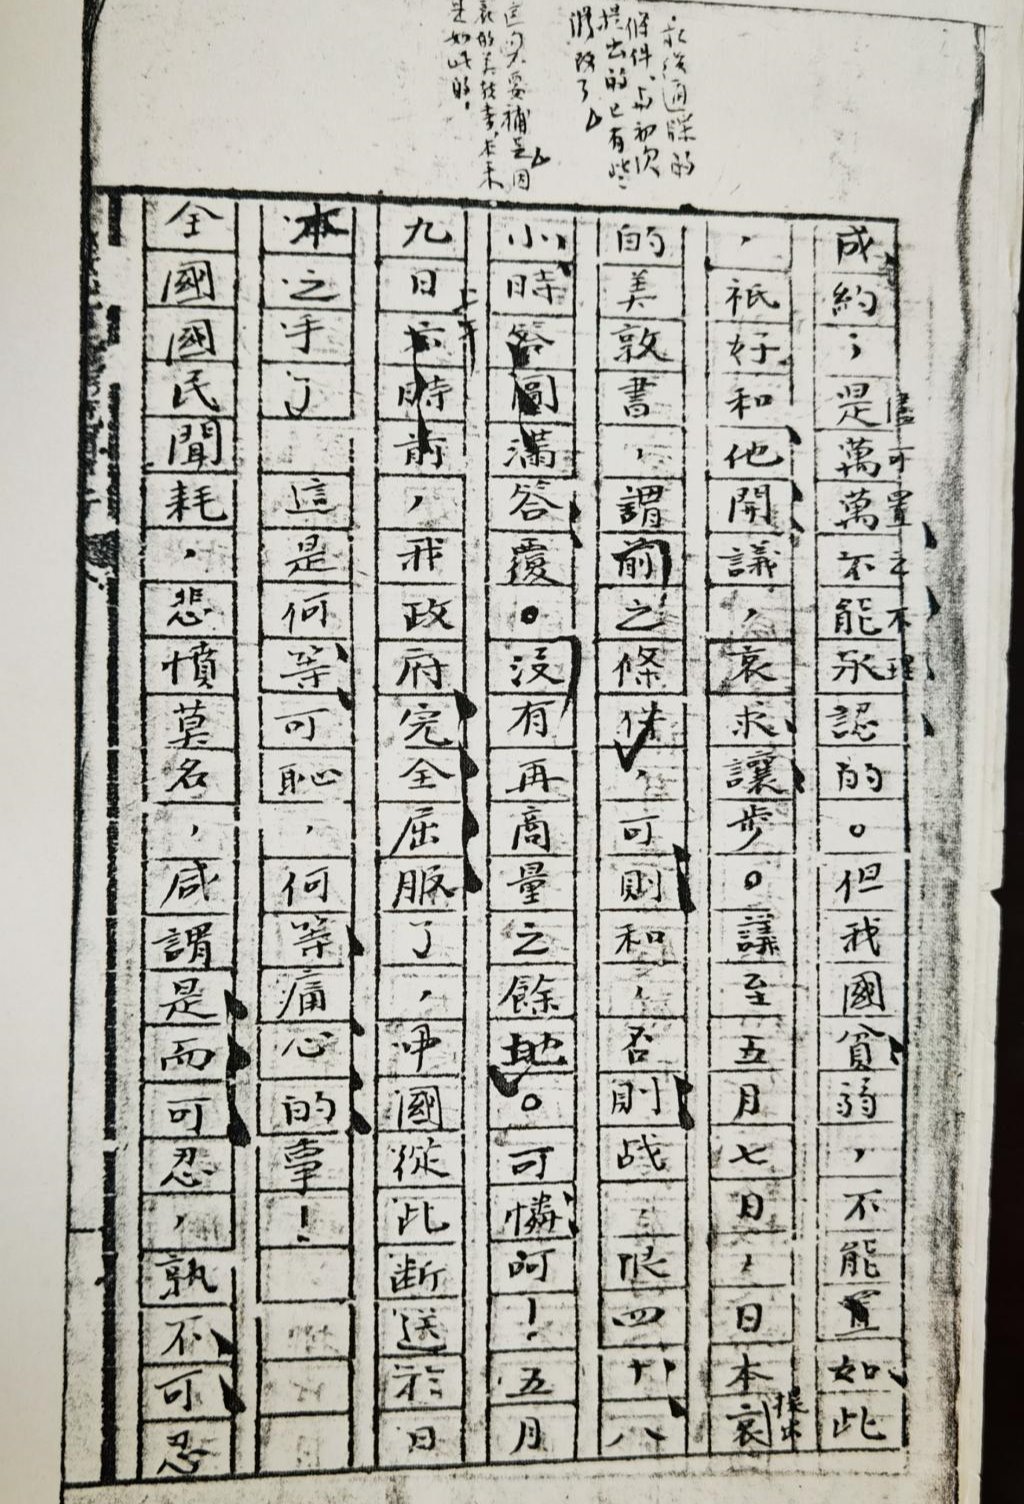 最後通牒的
條件,與初次
提出的已有些
消除了
成約；是萬萬不能承認的。但我國貧弱，不能置如此
儘可置之不理
，祇好和他開議，哀求讓步。議至五月七日，日本哀
提出
的美敦書，謂前之條件，可則和，否則战，限四十八
小時答圖滿答覆。沒有再商量之餘地。可憐呵！五月
九日六時前，我政府完全屈服了，中國從此断送於日
上午
本之手了 這是何等可恥，何等痛心的事！
全國國民聞耗，悲憤莫名，咸謂是而可忍，孰不可忍